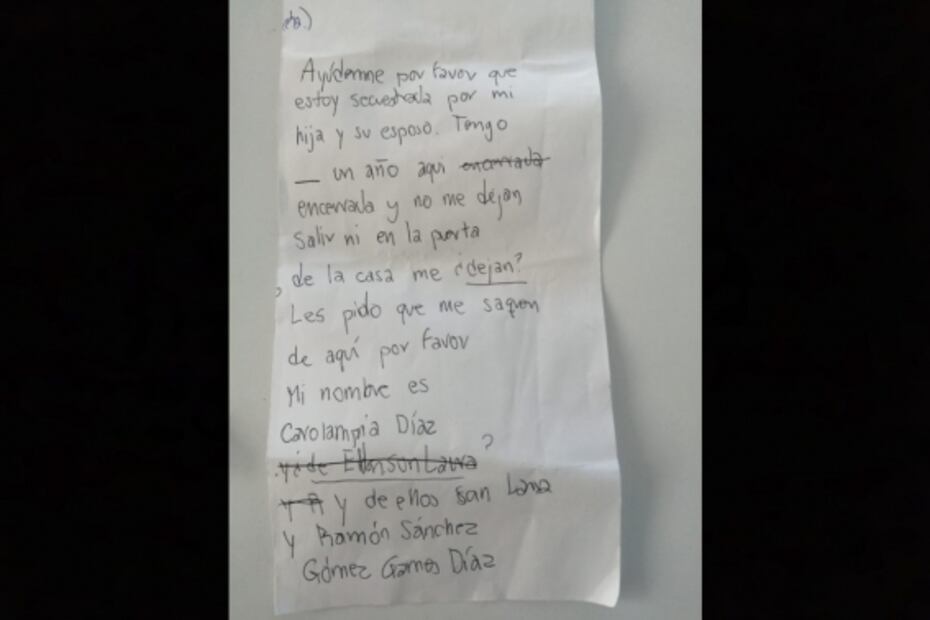 Ayúdenme por favor que
estoy secuestrada por mi
hija y su esposo. Tengo
__ un año aqui encerrada
encerrada y no me dejan
Salir ni en la puerta
de la casa me ¿dejan?
Les pido que me saquen
de aquí por favor
Mi nombre es
Carolampia Díaz
?
y de ellos son
y Ramón Sánchez
Gómez Díaz